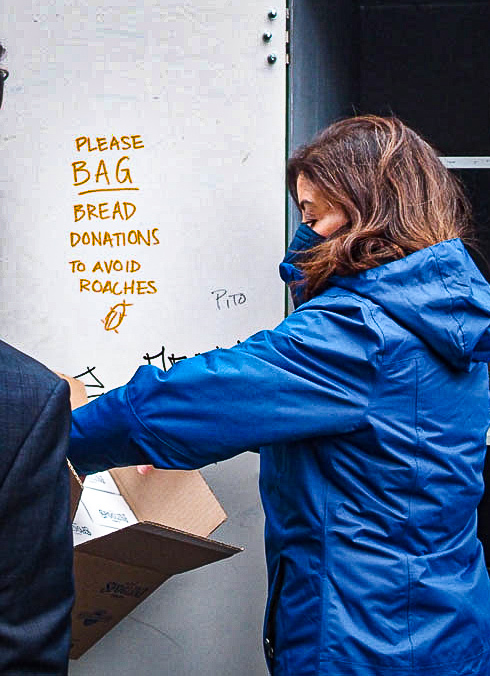 PLEASE
BAG
BREAD
DONATIONS
TO AVOID
ROACHES
PITO